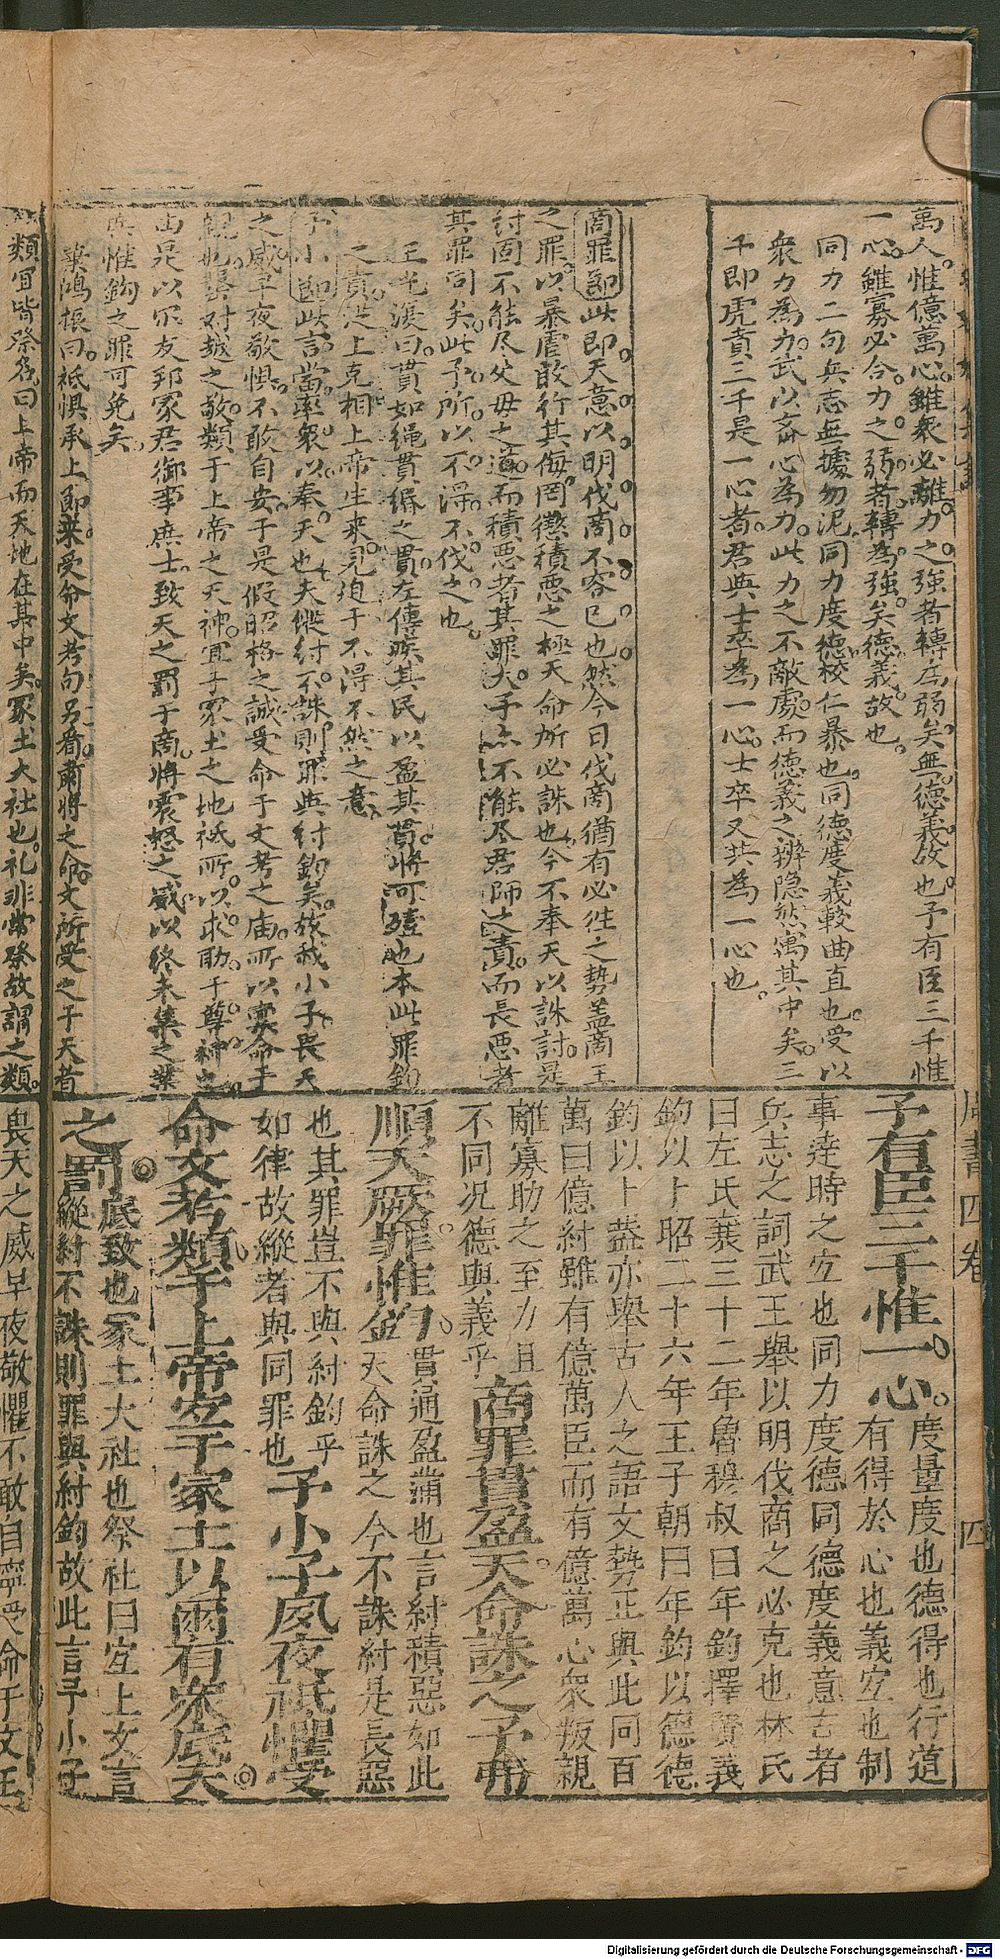 萬人惟億萬心雖衆必離力之強者轉為弱矣無德義故也予有臣三千惟
一心雖寡必合力之弱者轉為強矣德義故也
同力二句兵志無據勿泥同力度德校仁暴也同德度義較曲直也受以
衆力為力武以斎心為力此力之不敵處而德義之辨隐然寓其中矣三
千即虎賁三千是一心者君與士卒為一心士卒又共為一心也
商罪節此即天意以明伐商不容已也然今日伐商猶有必徃之勢盖商王
之罪以暴虐敢行其侮罔懲積悪之極天命所必誅也今不奉天以誅討是
紂固不能尽父母之道而積悪者其罪大予亦不能尽君師之責而長悪者
其罪同矣此予所以不得不伐之也
王光渼曰貫如绳貫缗之貫左傳疾其民以盈其貫将可殪也本此罪鈞
之責從上克相上帝生来見迫于不得不然之意
予小節此言當率衆以奉天也夫縱紂不誅則罪與紂鈞矣故我小子畏天
之威早夜敬惧不敢自安于是假昭格之誠受命于文考之庙所以禀命于
親也举对越之敬類于上帝之天神宜于冢土之地祗所以求助于尊神也
由是以尔友邦冢君御事庶士致天之罰于商将震怒之威以终未集之業
與惟鈞之罪可免矣
葉鴻振曰祗惧承上節来受命文考句另看肅将之命文所受之于天者
類宜皆祭名曰上帝而天地在其中矣冢土大社也礼非常祭故謂之類
周書四卷
四
予有臣三千惟一心度量度也德得也行道
有得於心也義宜也制
事達時之宜也同力度德同德度義意古者
兵志之詞武王舉以明伐商之必克也林氏
曰左氏襄三十二年魯穆叔曰年鈞擇賢義
鈞以卜昭二十六年王子朝曰年鈞以德德
鈞以卜蓋亦舉古人之語文勢正與此同百
萬曰億紂雖有億萬臣而有億萬心衆叛親
離寡助之至力且
不同况德與義乎商罪貫盈天命誅之予弗
順天厥罪惟鈞貫通盈滿也言紂積惡如此
天命誅之今不誅紂是長惡
也其罪豈不與紂鈞乎
如律故縱者與同罪也予小子夙夜祗懼受
命文考類于上帝宜于冢土以爾有衆底天
之罰底致也冢土大社也祭社曰宜上文言
縱紂不誅則罪與紂鈞故此言予小子
畏天之威早夜敬懼不敢自寧受命于文王
Digitalisierung gefördert durch die Deutsche Forschungsgemeinschaft - DFG